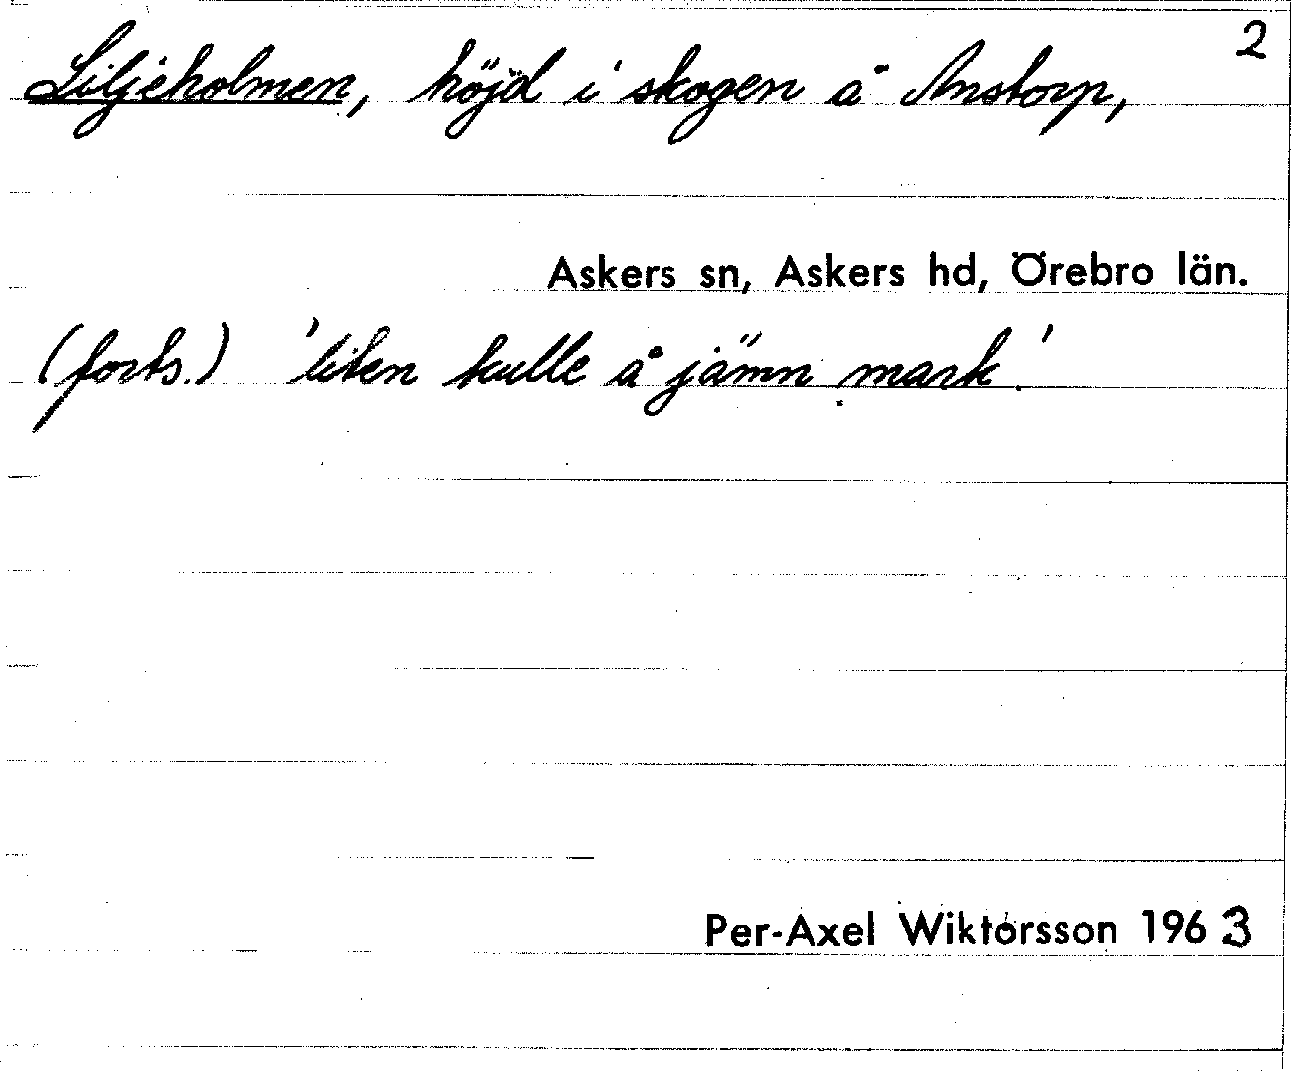 2
Liljeholmen, höjd i skogen å Anstorp,
Askers sn, Askers hd, Örebro län.
(forts.) 'liten kulle å jämn mark.'
Per-Axel Wiktorsson 1963